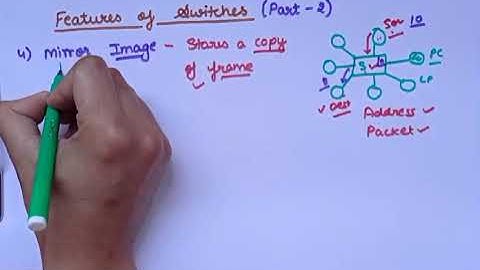 Features of Switches (Part-2)
4) Mirror Image - Stores a copy
of frame
Sou 10
PC
S
LP
Dest
Address
Packet